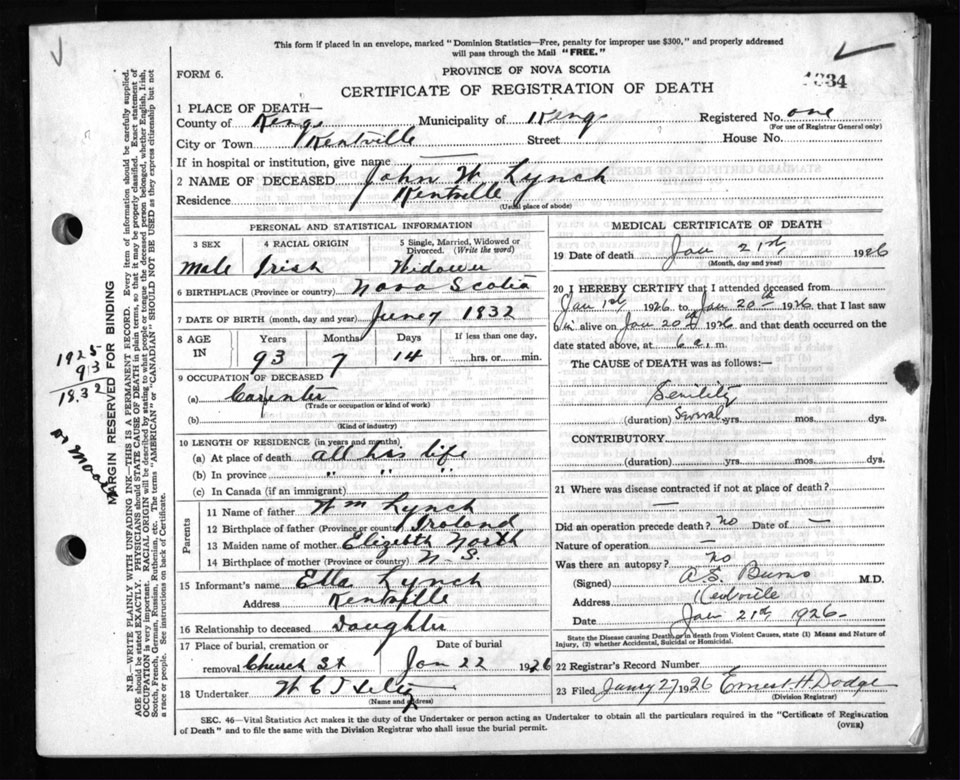 This form if placed in an envelope, marked "Dominion Statistics—Free, penalty for improper use $300," and properly addressed
will pass through the Mail "FREE."
FORM 6.
PROVINCE OF NOVA SCOTIA
CERTIFICATE OF REGISTRATION OF DEATH
1 PLACE OF DEATH—
County of Kings Municipality of Kings Registered No. one
(For use of Registrar General only)
City or Town Kentville Street House No.
If in hospital or institution, give name —
2 NAME OF DECEASED John W Lynch
Residence Kentville
(Usual place of abode)
PERSONAL AND STATISTICAL INFORMATION
3 SEX 4 RACIAL ORIGIN 5 Single, Married, Widowed or
Divorced. (Write the word)
Male Irish Widower
6 BIRTHPLACE (Province or country) Nova Scotia
7 DATE OF BIRTH (month, day and year) June 7 1832
8 AGE IN Years Months Days If less than one day,
93 7 14 hrs. or min.
9 OCCUPATION OF DECEASED
(a) Carpenter
(Trade or occupation or kind of work)
(b)
(Kind of industry)
10 LENGTH OF RESIDENCE (in years and months)
(a) At place of death all his life
(b) In province " " "
(c) In Canada (if an immigrant)
Parents
11 Name of father Wm Lynch
12 Birthplace of father (Province or country) Ireland
13 Maiden name of mother Elizabeth North
14 Birthplace of mother (Province or country) N.S.
15 Informant's name Ella Lynch
Address Kentville
16 Relationship to deceased Daughter
17 Place of burial, cremation or Date of burial
removal Church St Jan 22 1926
18 Undertaker W C T
(Name and address)
MEDICAL CERTIFICATE OF DEATH
19 Date of death Jan 21st 1926
(Month, day and year)
20 I HEREBY CERTIFY that I attended deceased from
Jan 1st 1926 to Jan 20th 1926 that I last saw
him alive on Jan 20th 1926 and that death occurred on
date stated above, at 6 a.m.
The CAUSE of DEATH was as follows:—
Senility
(duration) Several yrs. mos. dys.
CONTRIBUTORY
(duration) yrs. mos. dys.
21 Where was disease contracted if not at place of death?
—
Did an operation precede death? no Date of —
Nature of operation —
Was there an autopsy? no
(Signed) A.S. Burns M.D.
Address Kentville
Date Jan 21st 1926
State the Disease causing Death, or in death from Violent Causes, state (1) Means and Nature of
Injury, (2) whether Accidental, Suicidal or Homicidal.
22 Registrar's Record Number
23 Filed Janry 27 1926 Ernest H Dodge
(Division Registrar)
SEC. 46—Vital Statistics Act makes it the duty of the Undertaker or person acting as Undertaker to obtain all the particulars required in the "Certificate of Registration
of Death" and to file the same with the Division Registrar who shall issue the burial permit.
(OVER)
MARGIN RESERVED FOR BINDING
N.B.—WRITE PLAINLY WITH UNFADING INK—THIS IS A PERMANENT RECORD. Every item of information should be carefully supplied.
AGE should be stated EXACTLY. PHYSICIANS should STATE CAUSE OF DEATH in plain terms, so that it may be properly classified. Exact statement of
OCCUPATION is very important. RACIAL ORIGIN will be described by stating to what people or tongue the deceased person belonged, whether English, Irish,
Scotch, French, German, Russian, Ruthenian, etc. The terms "AMERICAN" or "CANADIAN" SHOULD NOT BE USED as they express citizenship but not
a race or people. See instructions on back of Certificate.
1925
93
1832